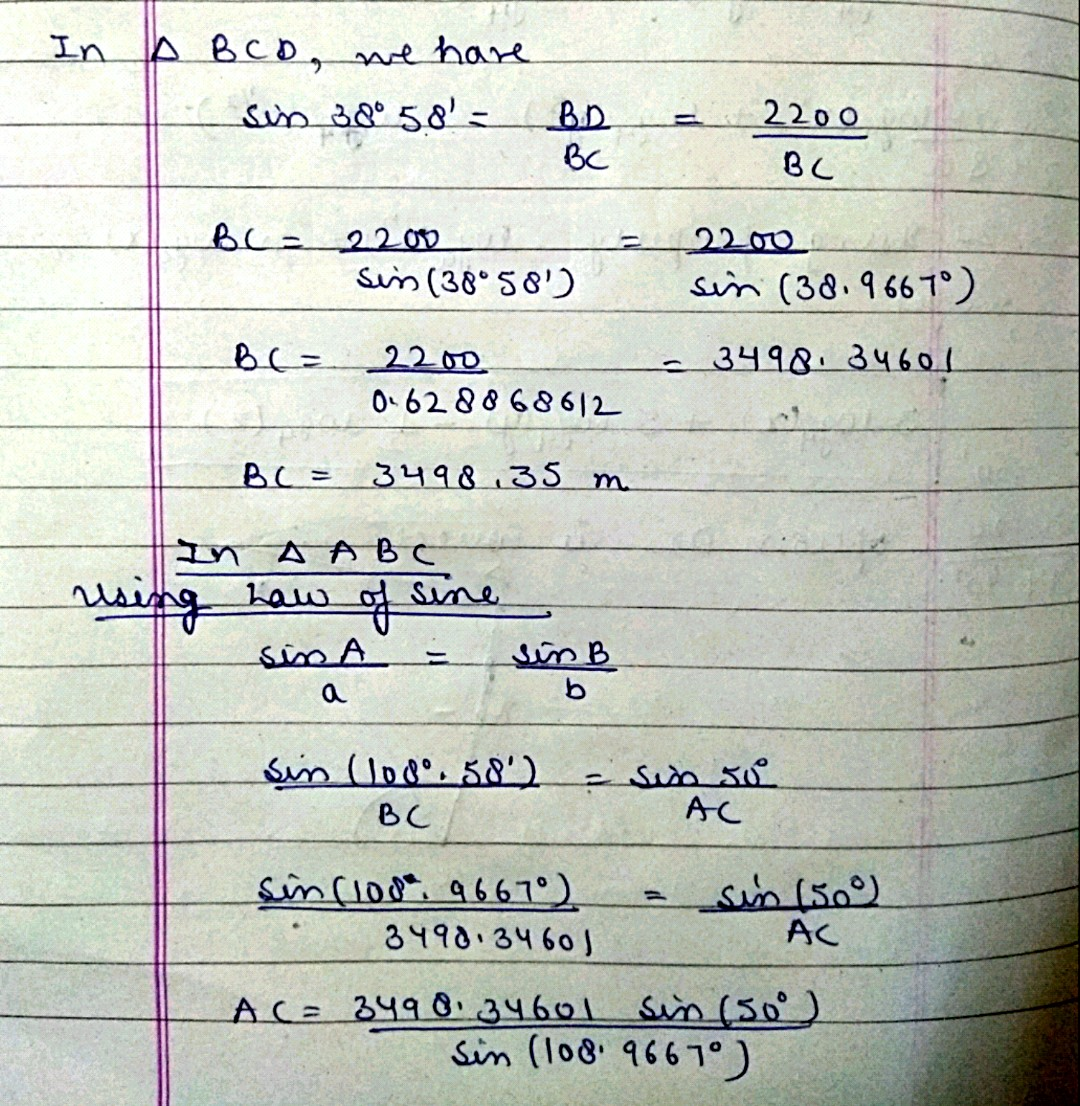 In Δ BCD, we have
sin 38° 58' = BD/BC = 2200/BC
BC = 2200/sin(38°58') = 2200/sin (38.9667°)
BC = 2200/0.628868612 = 3498.34601
BC = 3498.35 m
In Δ ABC
Using Law of Sine
sin A/a = sin B/b
sin (108°.58')/BC = sin 50°/AC
sin (108°.9667°)/3498.34601 = sin (50°)/AC
AC = 3498.34601 sin (50°)/sin (108.9667°)